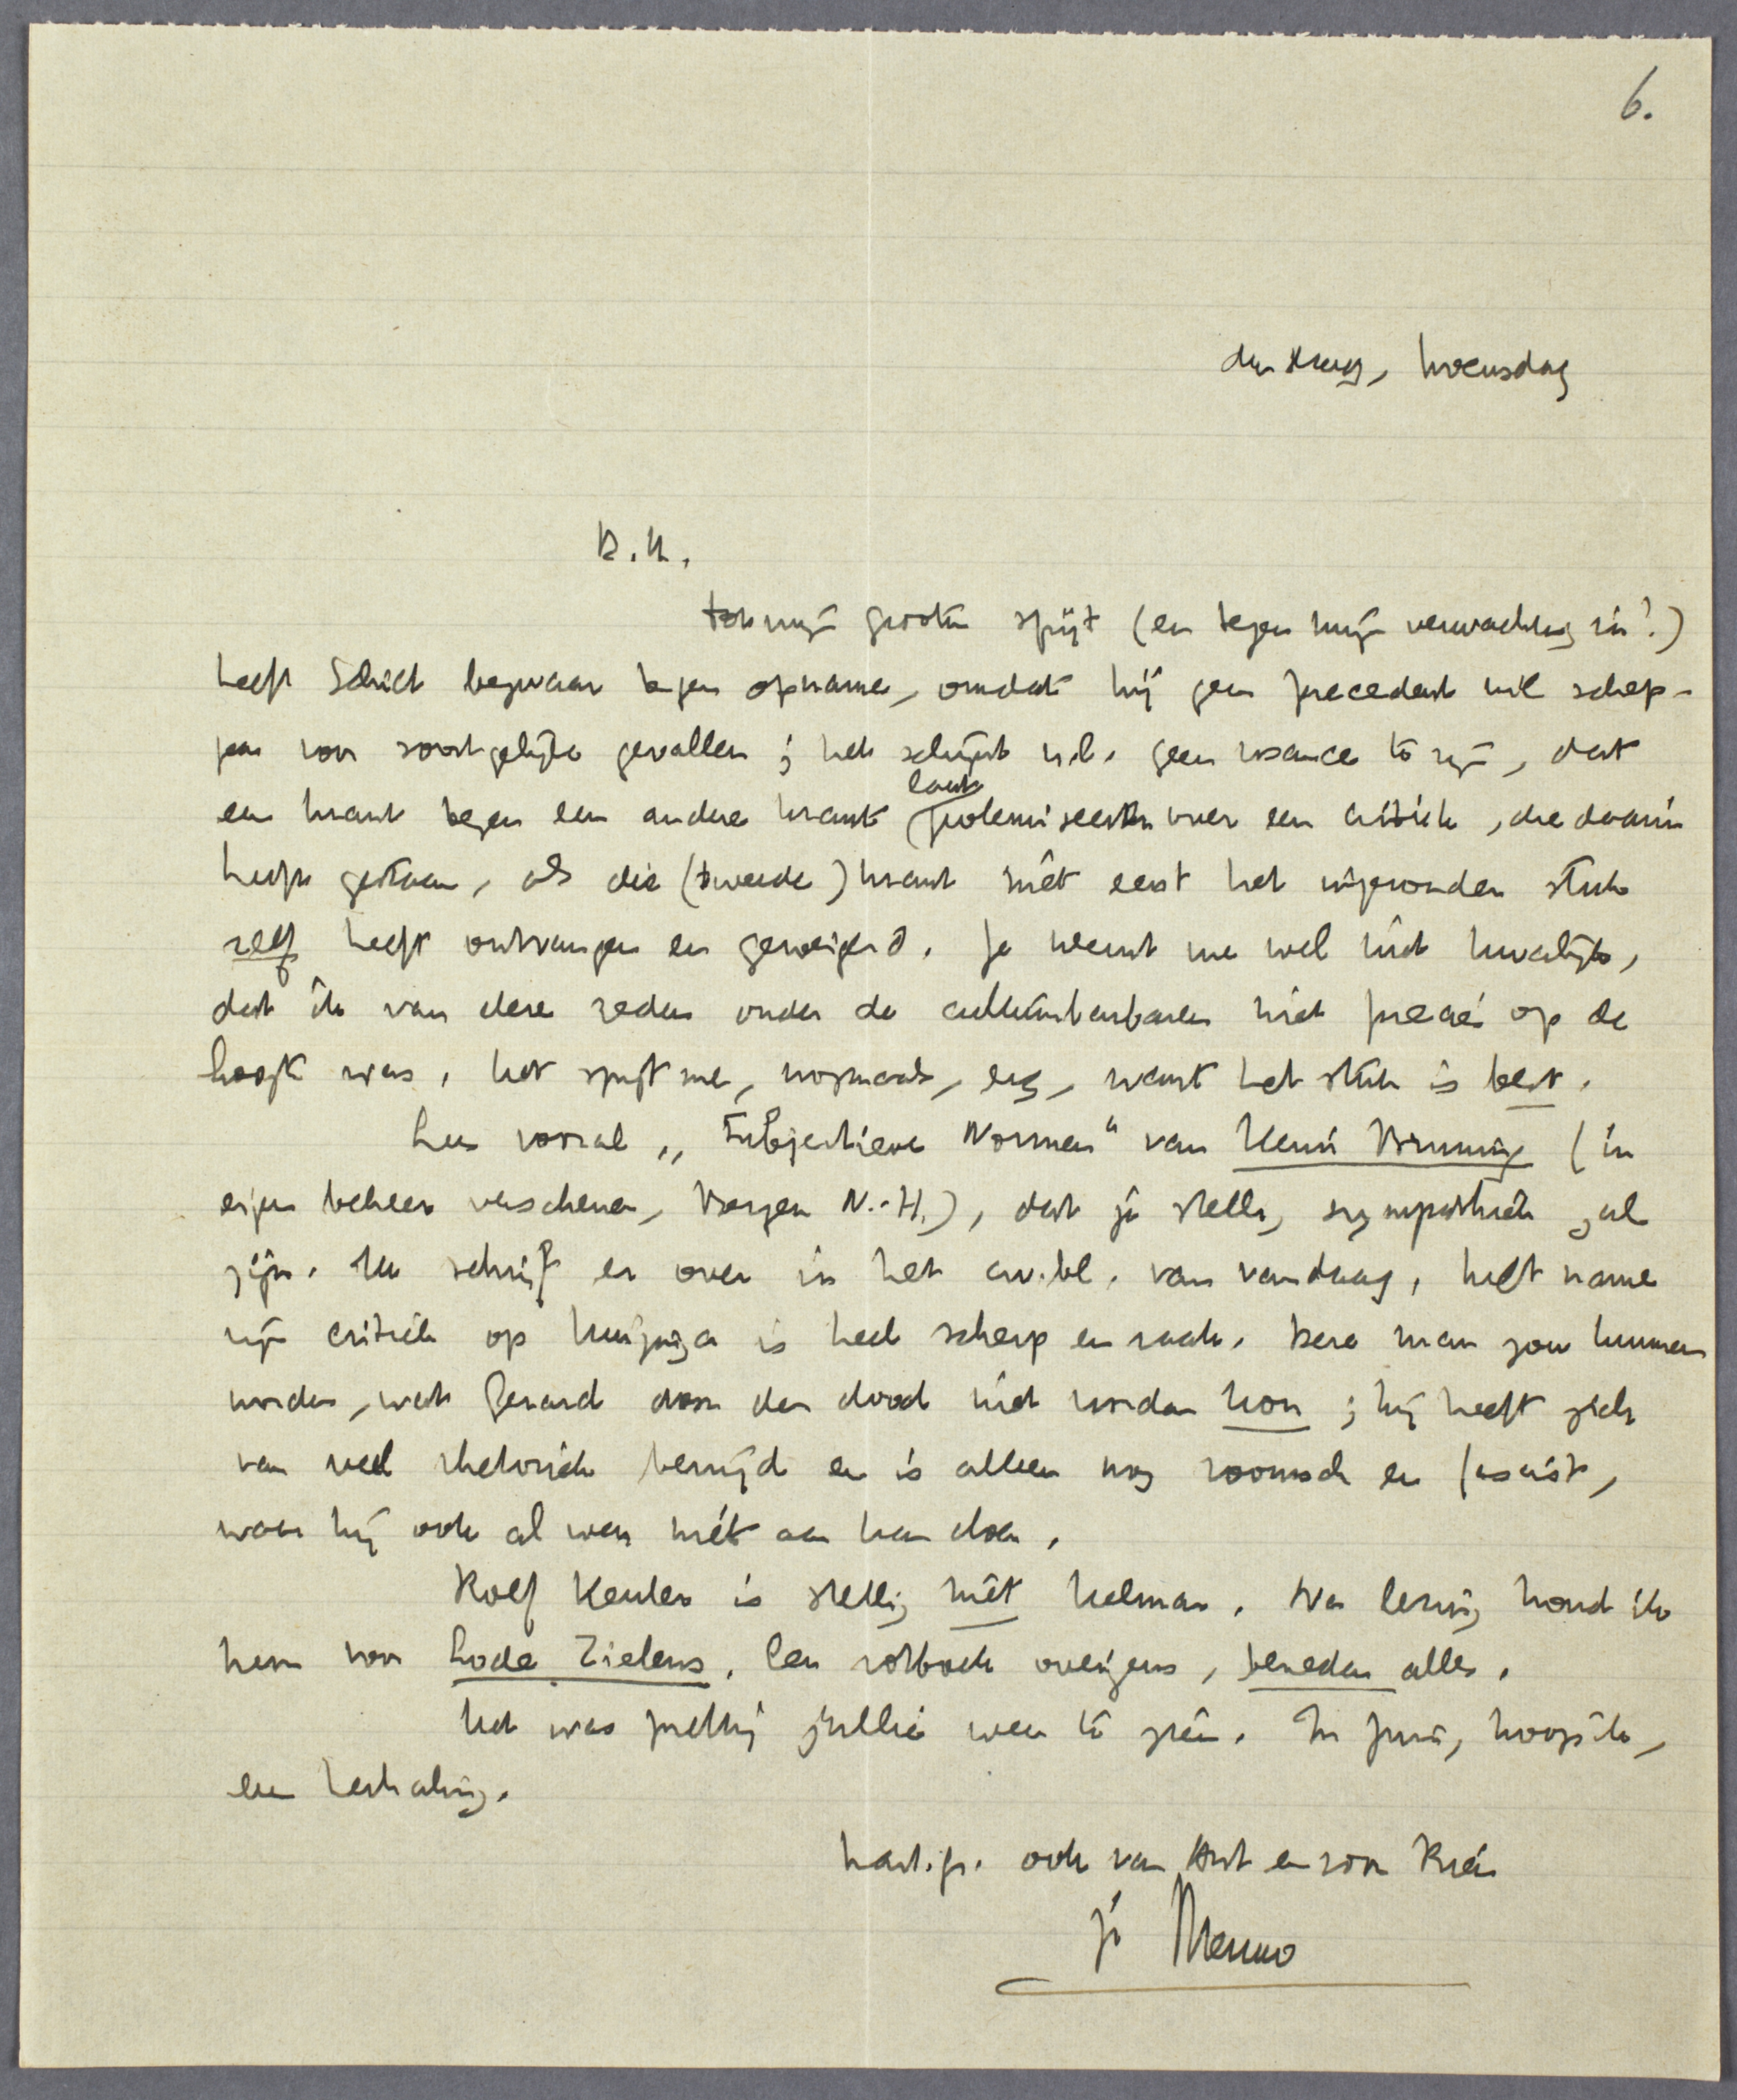 6.
den Haag, Woensdag
B.H.,
Tot mijn grooten spijt (en tegen mijn verwachting in!)
heeft Schilt bezwaar tegen opname, omdat hij geen precedent wil schep-
pen voor soortgelijke gevallen; het schijnt n.l. geen usance te zijn, dat
een krant tegen een andere krant laat polemiseeren over een critiek, die daarin
heeft gestaan, als die (tweede) krant niet eerst het ingezonden stuk
zelf heeft ontvangen en geweigerd. Je neemt me wel niet kwalijk,
dat ik van deze zeden onder de cultuurbarbaren niet precies op de
hoogte was. Het spijt me, nogmaals, erg, want het stuk is best.
Lees vooral „Subjectieve Normen" van Henri Bruning (in
eigen beheer verschenen, Bergen N.-H.), dat je stellig sympathiek zal
zijn. Ik schrijf er over in het av.bl. van vandaag. Met name
zijn critiek op Huizinga is heel scherp en raak. Deze man zou kunnen
worden, wat Gerard door den dood niet worden kon; hij heeft zich
van veel rhetoriek bevrijd en is alleen nog roomsch en fascist,
waar hij ook al weer niet aan kan doen.
Rolf Keuler is stellig niet Helman. Na lezing houd ik
hem voor Lode Zielens. Een rotboek overigens, beneden alles.
Het was prettig jullie weer te zien. In Juni, hoop ik,
een herhaling.
hart. gr. ook van Ant en voor Bien
je Menno